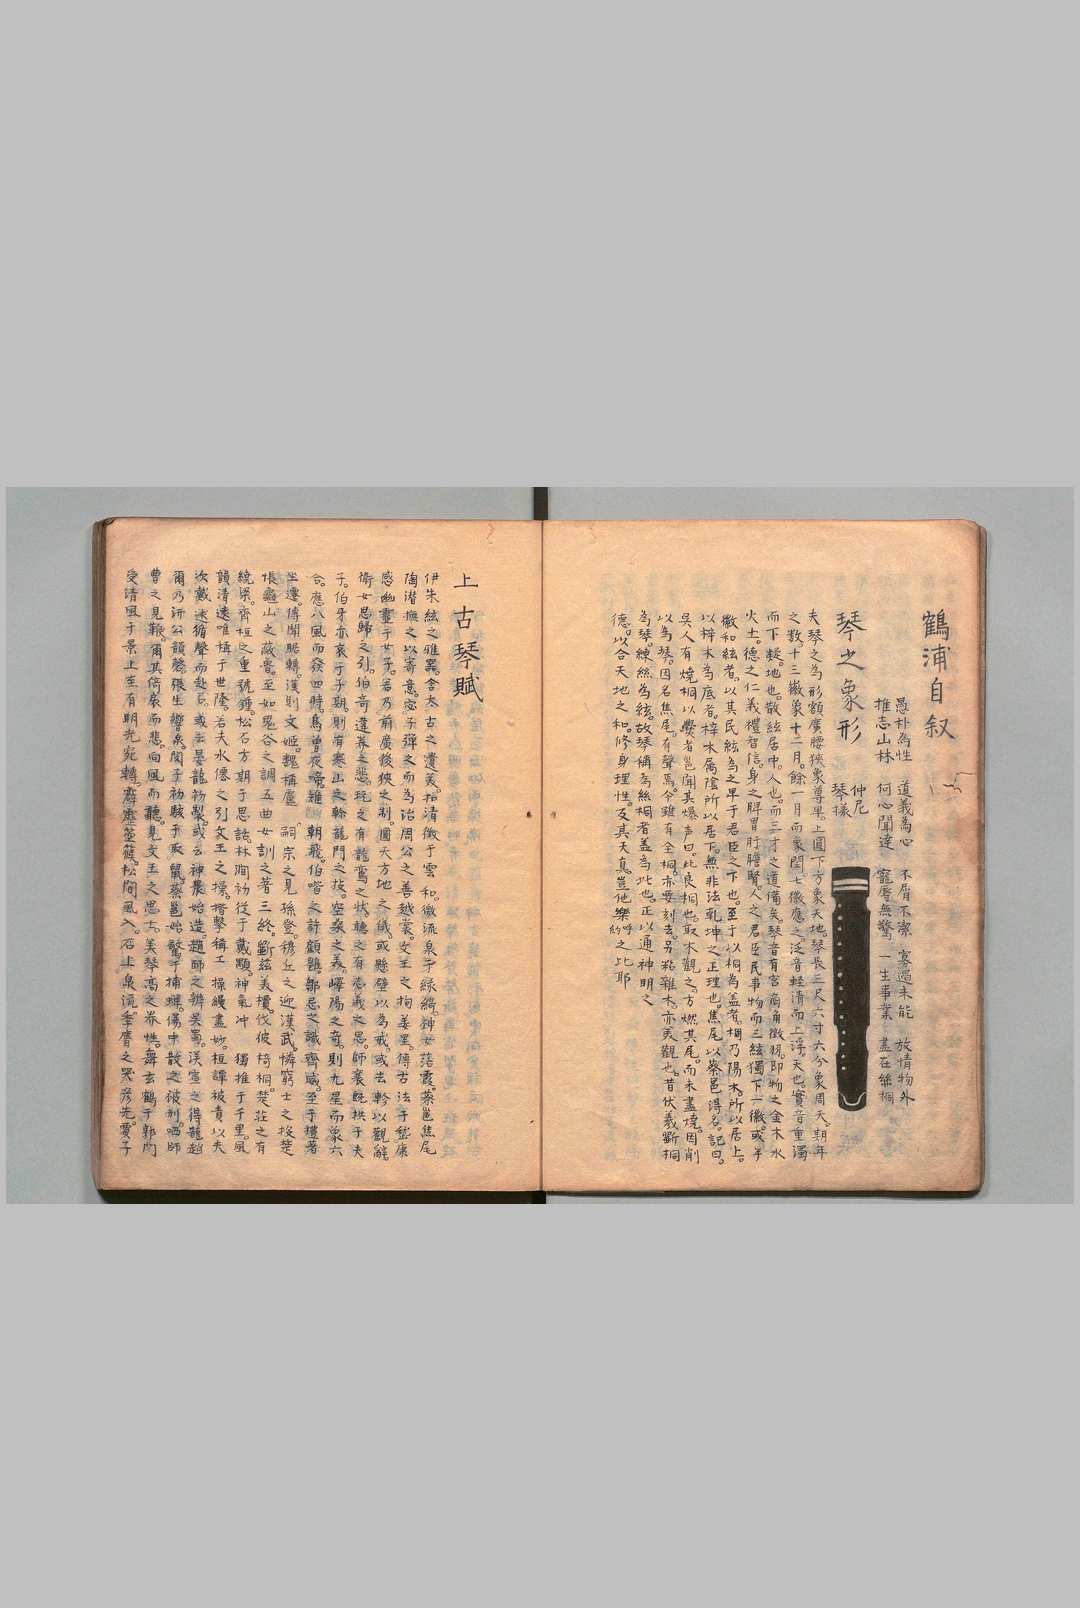 鶴浦自叙
愚朴為性 道義為心 不屑不潔 寡過未能 放情物外
推志山林 何心聞達 寵辱無驚 一生事業 盡在絲桐
琴之象形
仲尼
琴様
夫琴之為形額廣腰狭象尊卑上圓下方象天地琴長三尺六寸六分象周天朞年
之数十三徽象十二月餘一月而象閏七徽應之泛音軽清而上浮天也實音重濁
而下凝地也散絃居中人也而三才之道備矣琴音有宮商角徵羽即物之金木水
火土德之仁義禮智信身之脾胃肝膽腎人之君臣民事物而三絃獨下一徽或半
徽和絃者以其民絃為之卑于君臣之下也至于以桐為盖者桐乃陽木所以居上
以梓木為底者梓木属陰所以居下無非法乾坤之正理也焦尾以蔡邕得名記曰
呉人有燒桐以爨者邕聞其爆声曰此良桐也取木觀之方燃其尾而未盡燒因削
以為琴因名焦尾有聲焉今雖有全桐亦要刻去另粘雜木亦美觀也昔伏羲斵桐
為琴練絲為絃故琴稱為絲桐者盖為此也正以通神明之
德以合天地之和修身理性反其天真豈他樂之比耶
上古琴賦
伊朱絃之雅器含太古之遺美拍清徽于雲和徽流泉于緑綺神女落霞蔡邕焦尾
陶潜撫之以寄意宓子弾之而為治周公之善越裳文王之拘羑里得古法于嵆康
感幽靈于女子若乃前廣後狹之制圓天方地之儀或懸壁以為戒或去軫以觀
衛女思歸之引伯奇遺恭之悲琓之有龍鸞之状聴之有志義之思師襄既拱于夫
子伯牙亦哀于子期則有寒山之幹龍門之枝空桑之美嶧陽之奇則九星而象六
合應八風而發四時烏曽夜啼雉 朝飛伯喈之訴顧鵲鄒忌之識齊威至于禮著
坐遷傳聞聡轉漢則文姫魏稱盧 嗣宗之見孫登穆丘之迎漢武憐窮士之接楚
悵龜山之藏魯至如鬼谷之調五曲女訓之著三終斵茲美檟伐彼椅桐楚莊之有
繞梁齊桓之重號鍾松石方期于思話林澗初從于戴顒神氣冲 獨推于千里風
韻清遠唯稱于世隆若夫水僊之引文王之操揩擊稱工操縵盡妙桓譚被責以夫
次戴逵循聲而赴召或云晏龍初製或云神農始造趙師之辨呉蜀漢宣之得龍趙
爾乃沂公韻磬張生響泉閔子初駭于取鼠蔡邕始驚于捕蟬傷中散之被刑哂師
曹之見鞭爾其倚扆而悲向風而聴見文王之思士美琴高之养性舞玄鶴于郭門
受清風于景上至有明光宛轉霹靂箜篌松間風入石上泉流季膺之哭彦先賈子